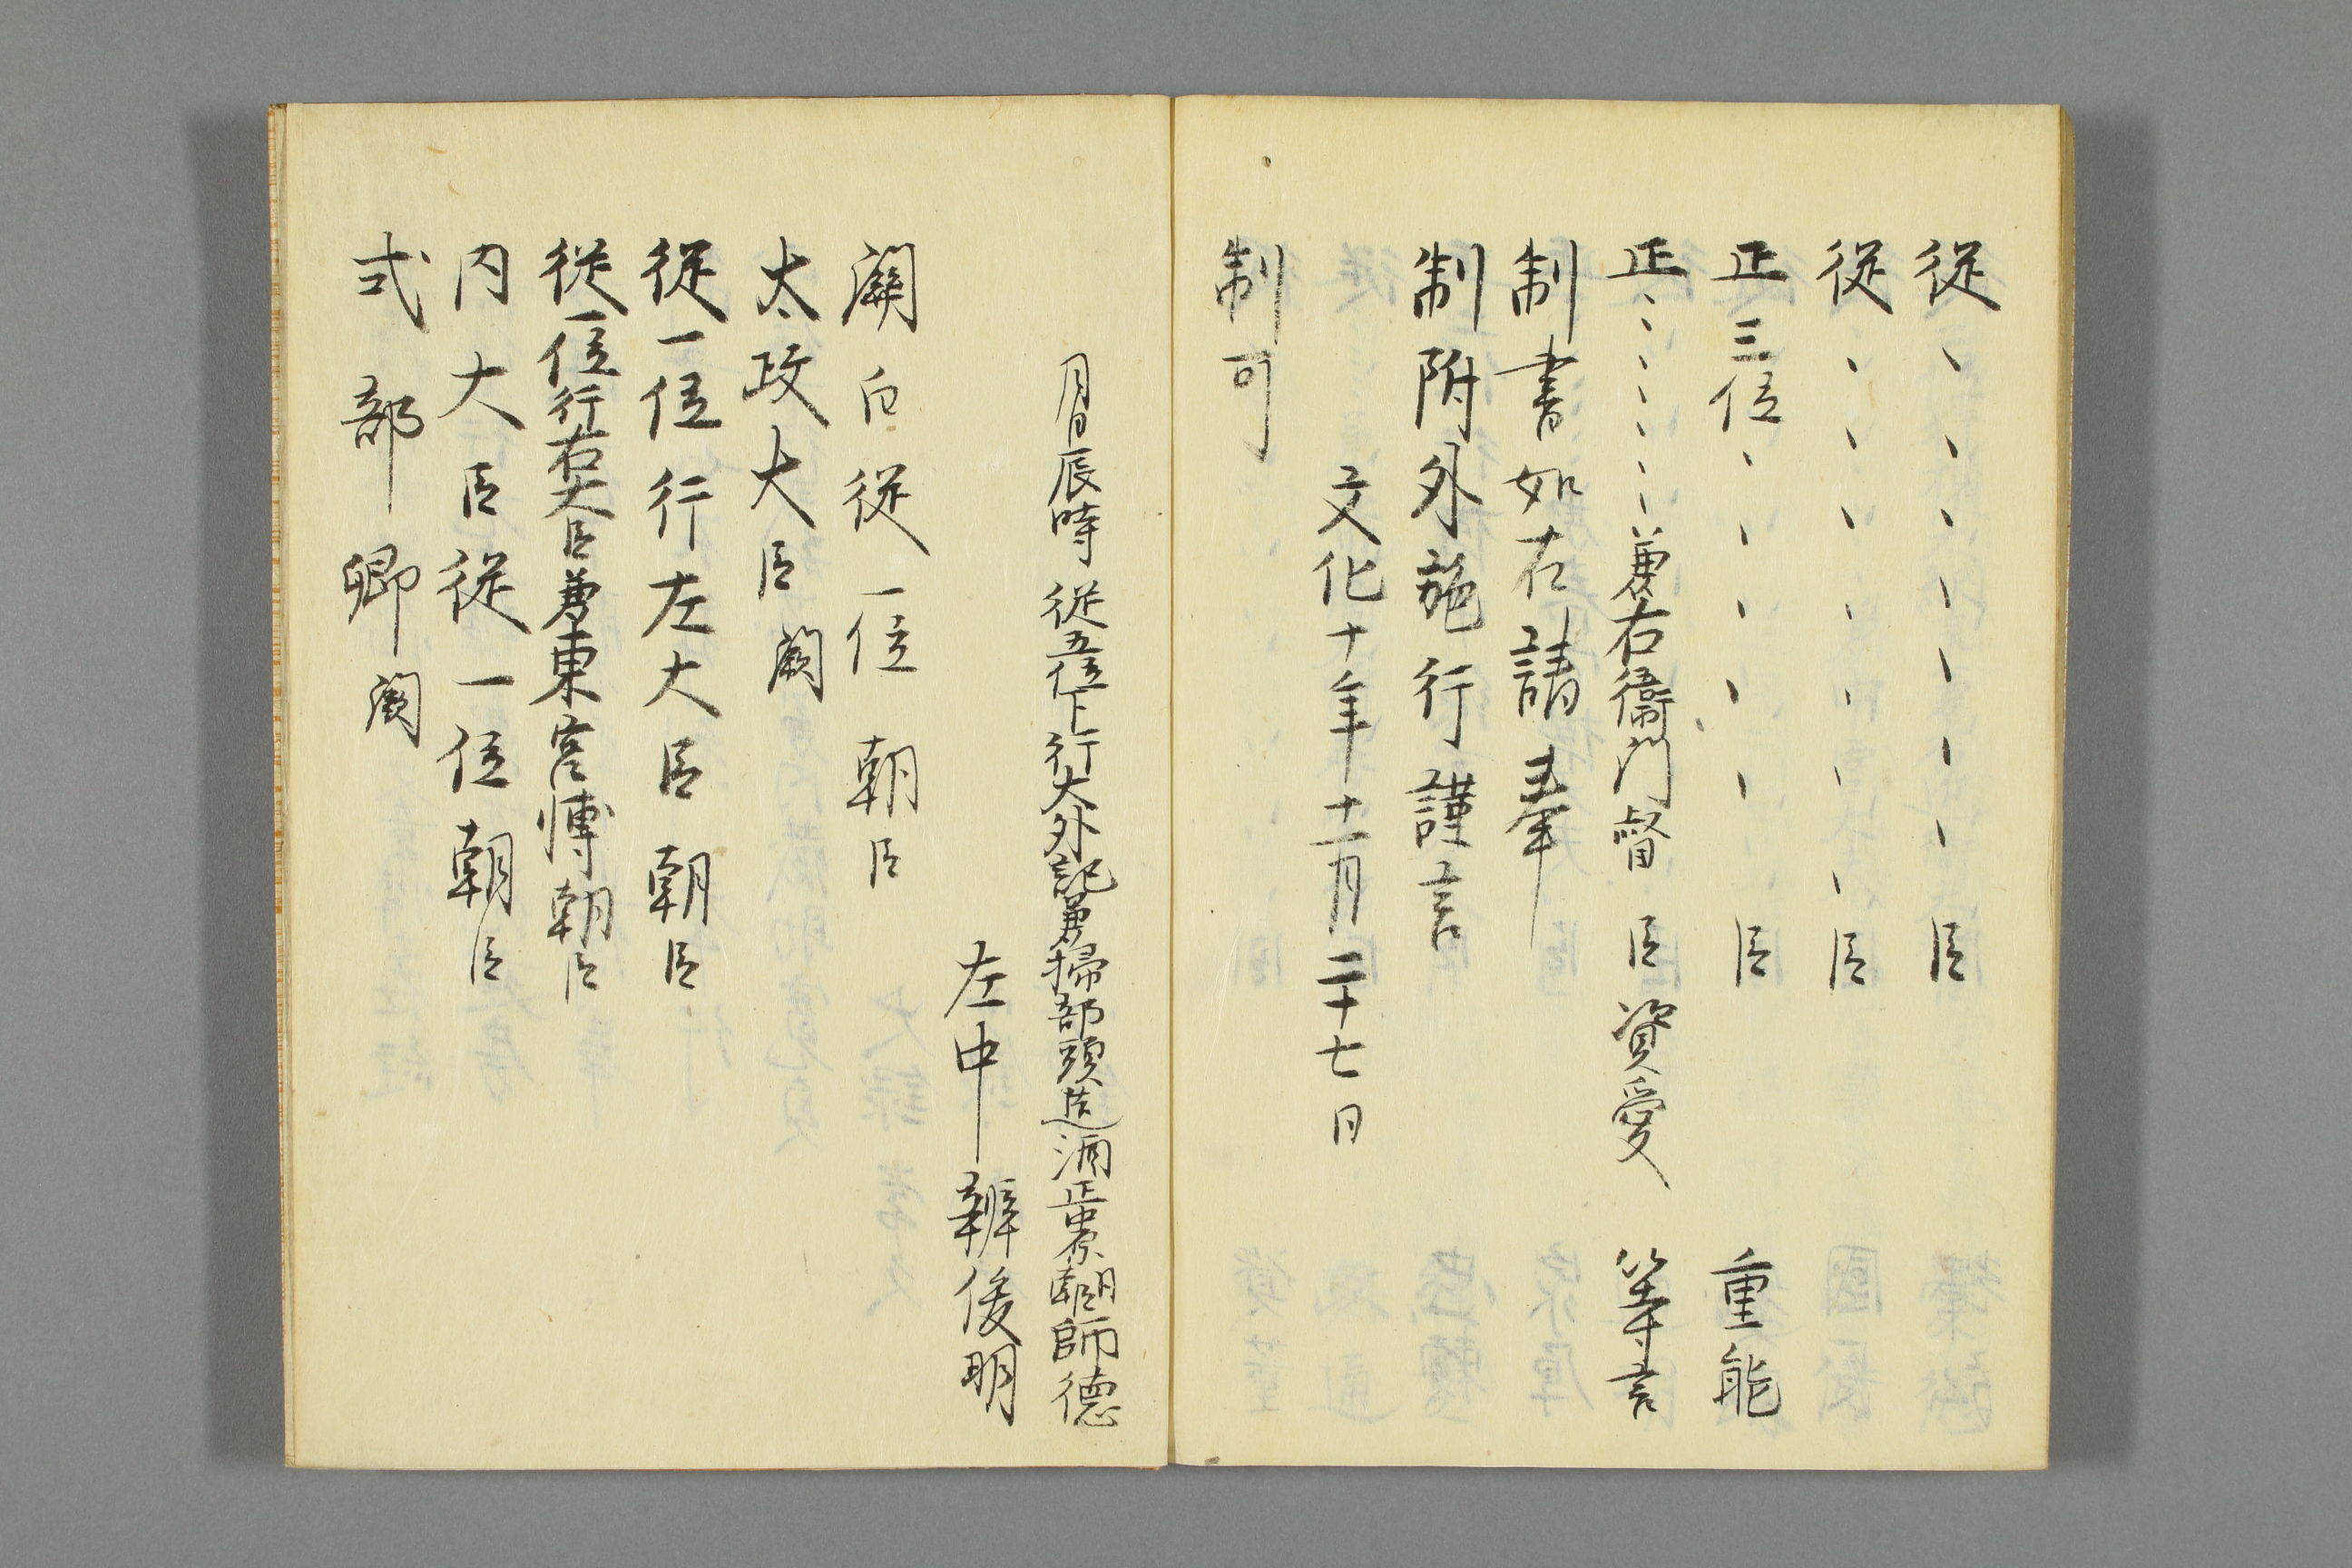 従、、、、、、、臣
従、、、、、、、、臣
正三位、、、、、臣 重能
正、、、、、、兼右衞門督臣資愛 等言
制書如右請奉
制附外施行謹言
文化十年十一月二十七日
制可
月日辰時 従五位下行大外記兼掃部頭造酒正中原朝臣師徳
左中辨俊明
關白従一位朝臣
太政大臣闕
従一位行左大臣朝臣
従一位行右大臣兼東宮傅朝臣
内大臣従一位朝臣
式部卿闕